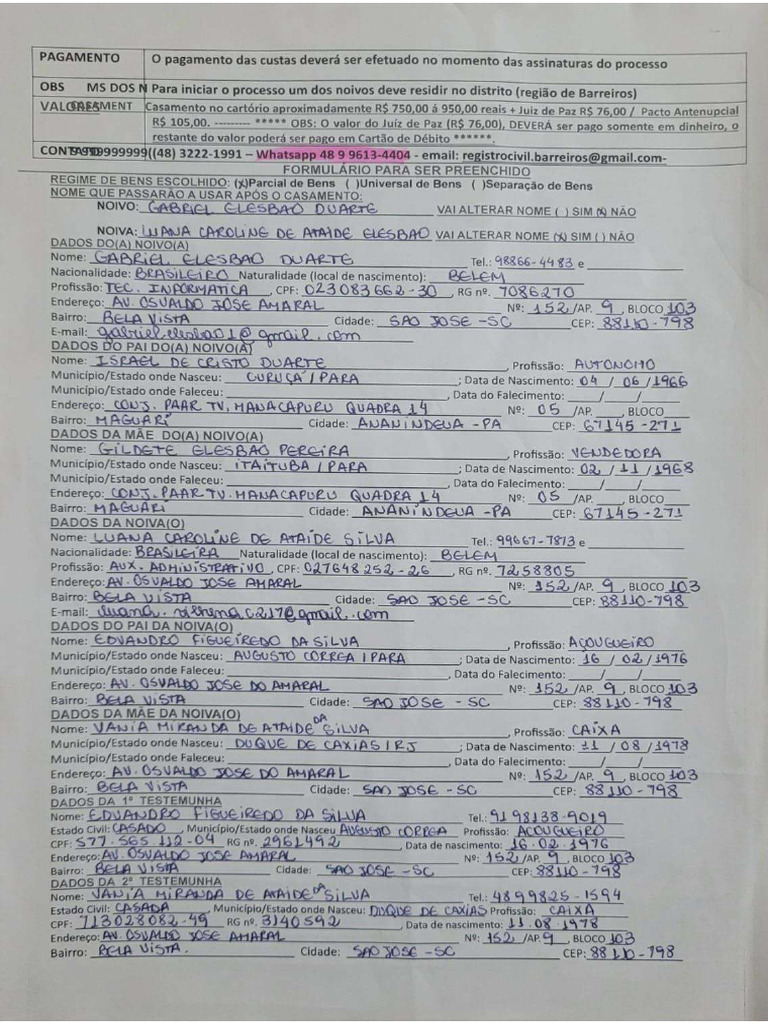 PAGAMENTO O pagamento das custas deverá ser efetuado no momento das assinaturas do processo
OBS MS DOS N Para iniciar o processo um dos noivos deve residir no distrito (região de Barreiros)
VALORES Casamento no cartório aproximadamente R$ 750,00 á 950,00 reais + Juiz de Paz R$ 76,00 / Pacto Antenupcial
R$ 105,00. --------- ***** OBS: O valor do Juíz de Paz (R$ 76,00), DEVERÁ ser pago somente em dinheiro, o
restante do valor poderá ser pago em Cartão de Débito ******.
((48) 3222-1991 – Whatsapp 48 9 9613-4404 - email: registrocivil.barreiros@gmail.com-
FORMULÁRIO PARA SER PREENCHIDO
REGIME DE BENS ESCOLHIDO: (x)Parcial de Bens ( )Universal de Bens ( )Separação de Bens
NOME QUE PASSARÃO A USAR APÓS O CASAMENTO:
NOIVO: GABRIEL ELESBAO DUARTE VAI ALTERAR NOME ( ) SIM (x) NÃO
NOIVA: LUANA CAROLINE DE ATAIDE ELESBAO VAI ALTERAR NOME (x) SIM ( ) NÃO
DADOS DO(A) NOIVO(A)
Nome: GABRIEL ELESBAO DUARTE Tel.: 98866-4483 e
Nacionalidade: BRASILEIRO Naturalidade (local de nascimento): BELEM
Profissão: TEC. INFORMATICA, CPF: 023083662-30, RG nº. 7086270
Endereço: AV. OSVALDO JOSE AMARAL Nº: 152/AP. 9, BLOCO 103
Bairro: BELA VISTA Cidade: SAO JOSE-SC CEP: 88110-798
E-mail: gabriel.elesbao1@gmail.com
DADOS DO PAI DO(A) NOIVO(A)
Nome: ISRAEL DE CRISTO DUARTE, Profissão: AUTONOMO
Município/Estado onde Nasceu: CURUÇÁ / PARA ; Data de Nascimento: 04 / 06 / 1966
Município/Estado onde Faleceu: , Data do Falecimento: / /
Endereço: CONJ. PAAR TV. MANACAPURU QUADRA 14 Nº: 05 /AP. , BLOCO
Bairro: MAGUARI Cidade: ANANINDEUA-PA CEP: 67145-271
DADOS DA MÃE DO(A) NOIVO(A)
Nome: GILDETE ELESBAO PEREIRA, Profissão: VENDEDORA
Município/Estado onde Nasceu: ITAITUBA / PARA ; Data de Nascimento: 02 / 11 / 1968
Município/Estado onde Faleceu: , Data do Falecimento: / /
Endereço: CONJ. PAAR TV. MANACAPURU QUADRA 14 Nº: 05 /AP. , BLOCO
Bairro: MAGUARI Cidade: ANANINDEUA-PA CEP: 67145-271
DADOS DA NOIVA(O)
Nome: LUANA CAROLINE DE ATAIDE SILVA Tel.: 99667-7873 e
Nacionalidade: BRASILEIRA Naturalidade (local de nascimento): BELEM
Profissão: AUX. ADMINISTRATIVO, CPF: 027648252-26, RG nº. 7258305
Endereço: AV. OSVALDO JOSE AMARAL Nº: 152/AP. 9, BLOCO 103
Bairro: BELA VISTA Cidade: SAO JOSE-SC CEP: 88110-798
E-mail: @gmail.com
DADOS DO PAI DA NOIVA(O)
Nome: EDVANDRO FIGUEIREDO DA SILVA, Profissão: AÇOUGUEIRO
Município/Estado onde Nasceu: AUGUSTO CORREA / PARA ; Data de Nascimento: 16 / 02 / 1976
Município/Estado onde Faleceu: , Data do Falecimento: / /
Endereço: AV. OSVALDO JOSE DO AMARAL Nº: 152 /AP. 9, BLOCO 103
Bairro: BELA VISTA Cidade: SAO JOSE-SC CEP: 88110-798
DADOS DA MÃE DA NOIVA(O)
Nome: VANIA MIRANDA DE ATAIDE DA SILVA, Profissão: CAIXA
Município/Estado onde Nasceu: DUQUE DE CAXIAS / RJ ; Data de Nascimento: 11 / 08 / 1978
Município/Estado onde Faleceu: , Data do Falecimento: / /
Endereço: AV. OSVALDO JOSE DO AMARAL Nº: 152 /AP. 9, BLOCO 103
Bairro: BELA VISTA Cidade: SAO JOSE-SC CEP: 88110-798
DADOS DA 1º TESTEMUNHA
Nome: EDVANDRO FIGUEIREDO DA SILVA Tel.: 9198138-9019
Estado Civil: CASADO, Município/Estado onde Nasceu AUGUSTO CORREA Profissão: AÇOUGUEIRO
CPF: 577.565 112-04 RG nº. 2961492, Data de nascimento: 16.02.1976
Endereço: AV. OSVALDO JOSE AMARAL Nº: 152/AP. 9, BLOCO 103
Bairro: BELA VISTA Cidade: SAO JOSE-SC CEP: 88110-798
DADOS DA 2º TESTEMUNHA
Nome: VANIA MIRANDA DE ATAIDE DA SILVA Tel.: 4899825-1594
Estado Civil: CASADA, Município/Estado onde Nasceu: DUQUE DE CAXIAS Profissão: CAIXA
CPF: 713028082-49 RG nº. 3140592 Data de nascimento: 11.08.1978
Endereço: AV. OSVALDO JOSE AMARAL Nº: 152 /AP. 9, BLOCO 103
Bairro: BELA VISTA. Cidade: SAO JOSE-SC CEP: 88110-798